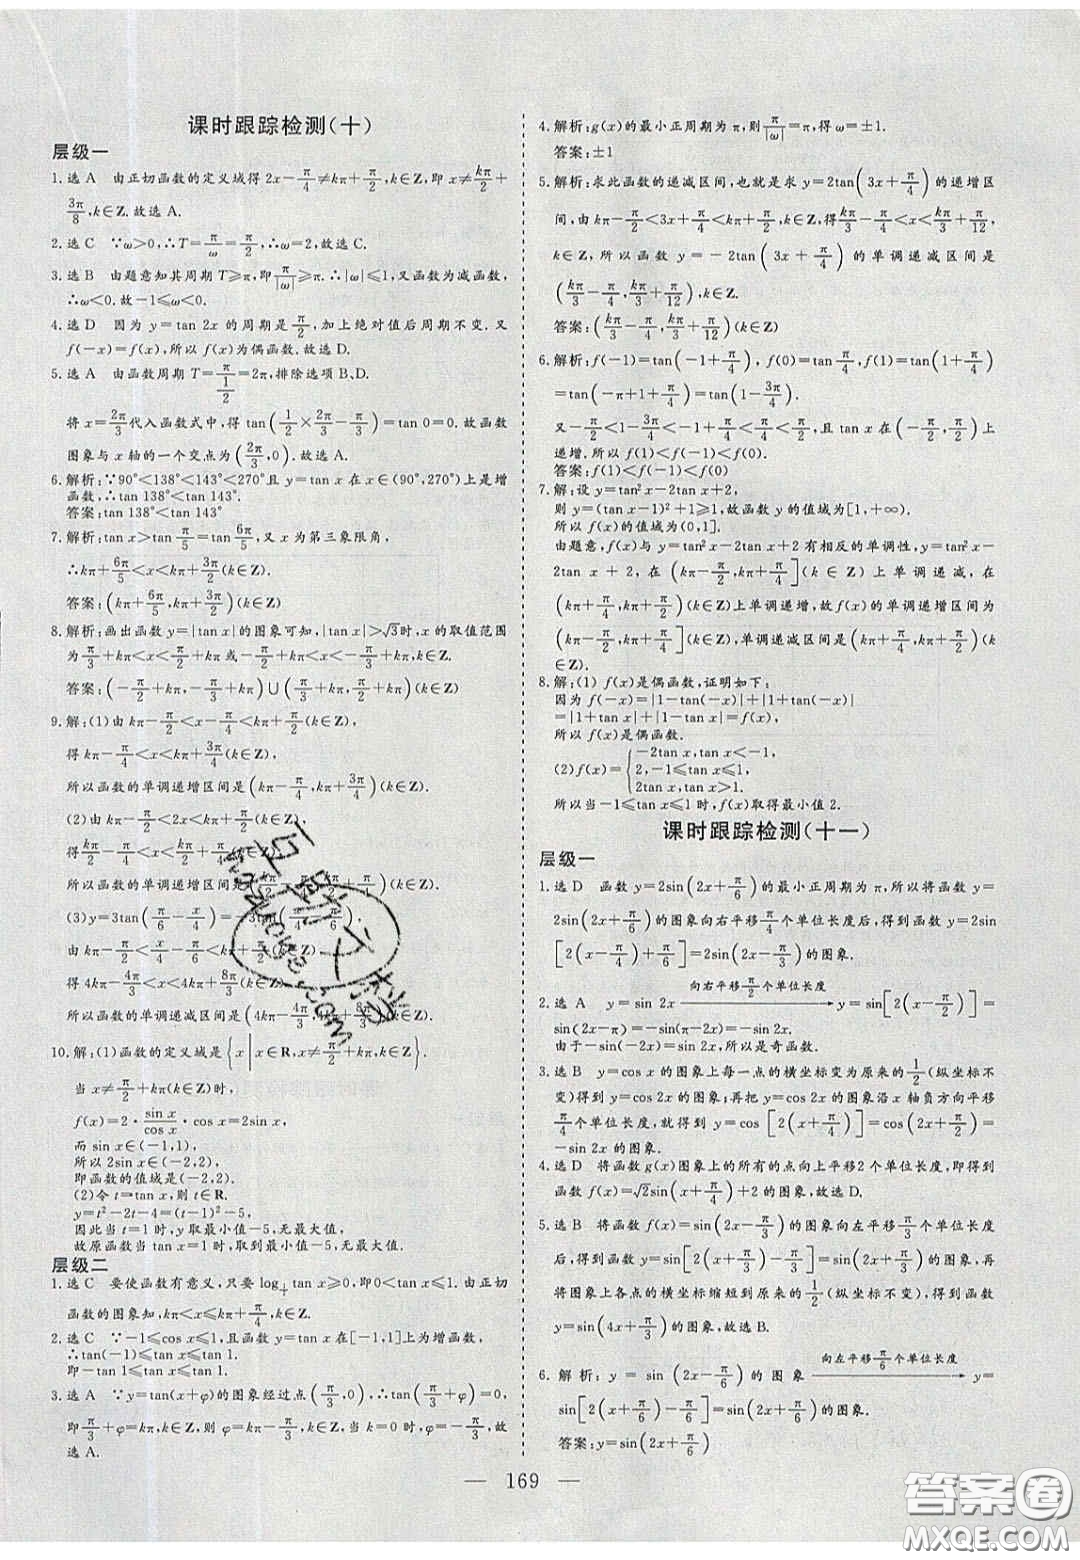 课时跟踪检测(十)
层级一
1. 选 A 由正切函数的定义域得 2x-π/4≠kπ+π/2,k∈Z,即 x≠kπ/2+
3π/8,k∈Z. 故选 A.
2. 选 C ∵ω>0,∴T=π/ω=π/2,∴ω=2,故选 C.
3. 选 B 由题意知其周期 T≥π,即π/|ω|≥π. ∴|ω|≤1,又函数为减函数,
∴ω<0. 故-1≤ω<0.
4. 选 D 因为 y=tan 2x 的周期是π/2,加上绝对值后周期不变. 又
f(-x)=f(x),所以 f(x)为偶函数. 故选 D.
5. 选 A 由函数周期 T=π/(1/2)=2π,排除选项 B、D.
将 x=2π/3代入函数式中,得 tan(1/2×2π/3-π/3)=tan 0=0. 故函数
图象与 x 轴的一个交点为(2π/3,0). 故选 A.
6. 解析:∵90°<138°<143°<270°且 y=tan x 在 x∈(90°,270°)上是增
函数,∴tan 138°<tan 143°.
答案:tan 138°<tan 143°
7. 解析:tan x>tan π/5=tan 6π/5,又 x 为第三象限角,
∴kπ+6π/5<x<kπ+3π/2(k∈Z).
答案:(kπ+6π/5,kπ+3π/2)(k∈Z)
8. 解析:画出函数 y=|tan x|的图象可知,|tan x|>√3时,x 的取值范围
为π/3+kπ<x<π/2+kπ 或-π/2+kπ<x<-π/3+kπ,k∈Z.
答案:(-π/2+kπ,-π/3+kπ)∪(π/3+kπ,π/2+kπ)(k∈Z)
9. 解:(1)由 kπ-π/2<x-π/4<kπ+π/2(k∈Z),
得 kπ-π/4<x<kπ+3π/4(k∈Z).
所以函数的单调递增区间是(kπ-π/4,kπ+3π/4)(k∈Z).
(2)由 kπ-π/2<2x<kπ+π/2(k∈Z),
得kπ/2-π/4<x<kπ/2+π/4(k∈Z).
所以函数的单调递增区间是
(3)y=3tan(π/6-x/4)
由 kπ-π/2<
得 4kπ-4π/3<x<4kπ+8π/3(k∈Z).
所以函数的单调递减区间是(4kπ-4π/3,4kπ+8π/3)(k∈Z).
10. 解:(1)函数的定义域是{x|x∈R,x≠π/2+kπ,k∈Z}.
当 x≠π/2+kπ(k∈Z)时,
f(x)=2·sin x/cos x·cos x=2sin x,
而 sin x∈(-1,1),
所以 2sin x∈(-2,2),
即函数的值域是(-2,2).
(2)令 t=tan x,则 t∈R.
y=t²-2t-4=(t-1)²-5,
因此当 t=1 时,y 取最小值-5,无最大值,
故原函数当 tan x=1 时,取到最小值-5,无最大值.
层级二
1. 选 C 要使函数有意义,只要 log tan x≥0,即 0<tan x≤1. 由正切
函数的图象知,kπ<x≤kπ+π/4,k∈Z.
2. 选 C ∵-1≤cos x≤1,且函数 y=tan x 在[-1,1]上为增函数,
∴tan(-1)≤tan x≤tan 1.
即-tan 1≤tan x≤tan 1.
3. 选 A ∵y=tan(x+φ)的图象经过点(π/3,0),∴tan(π/3+φ)=0,
即π/3+φ=kπ,k∈Z,则 φ=kπ-π/3,k∈Z,当 k=0 时,φ=-π/3,故
选 A.
4. 解析:g(x)的最小正周期为 π,则π/|ω|=π,得 ω=±1.
答案:±1
5. 解析:求此函数的递减区间,也就是求 y=2tan(3x+π/4)的递增区
间,由 kπ-π/2<3x+π/4<kπ+π/2,k∈Z,得kπ/3-π/4<x<kπ/3+π/12,
k∈Z,所以函数 y=-2tan(3x+π/4)的单调递减区间是
(kπ/3-π/4,kπ/3+π/12),k∈Z.
答案:(kπ/3-π/4,kπ/3+π/12)(k∈Z)
6. 解析:f(-1)=tan(-1+π/4),f(0)=tan π/4,f(1)=tan(1+π/4)
=tan(-π+1+π/4)=tan(1-3π/4).
又-π/2<1-3π/4<-1+π/4<π/4<π/2,且函数 tan x 在(-π/2,π/2)上
递增. 所以 f(1)<f(-1)<f(0)
答案:f(1)<f(-1)<f(0)
7. 解:设 y=tan²x-2tan x+2,
则 y=(tan x-1)²+1≥1,故函数 y 的值域为[1,+∞).
所以 f(x)的值域为(0,1].
由题意,f(x)与 y=tan²x-2tan x+2 有相反的单调性,y=tan²x-
2tan x+2,在(kπ-π/2,kπ+π/4](k∈Z)上单调递减,在
(kπ+π/4,kπ+π/2)(k∈Z)上单调递增,故 f(x)的单调递增区间为
(kπ-π/2,kπ+π/4](k∈Z),单调递减区间是(kπ+π/4,kπ+π/2)(k
∈Z).
8. 解:(1)f(x)是偶函数,证明如下:
因为 f(-x)=|1-tan(-x)|+|1+tan(-x)|
=|1+tan x|+|1-tan x|=f(x),
所以 f(x)是偶函数.
(2)f(x)={-2tan x,tan x<-1,
2,-1≤tan x≤1,
2tan x,tan x>1.
所以当-1≤tan x≤1 时,f(x)取得最小值 2.
课时跟踪检测(十一)
层级一
1. 选 D 函数 y=2sin(2x+π/6)的最小正周期为 π,所以将函数 y=
2sin(2x+π/6)的图象向右平移π/4个单位长度后,得到函数 y=2sin
[2(x-π/4)+π/6]=2sin(2x-π/3)的图象.
2. 选 A y=sin 2x 向右平移π/2个单位长度 y=sin[2(x-π/2)]=
sin(2x-π)=-sin(π-2x)=-sin 2x.
由于-sin(-2x)=sin 2x,所以是奇函数.
3. 选 B y=cos x 的图象上每一点的横坐标变为原来的1/2(纵坐标不
变)得 y=cos 2x 的图象;再把 y=cos 2x 的图象沿 x 轴负方向平移
π/4个单位长度,就得到 y=cos[2(x+π/4)]=cos(2x+π/2)=
-sin 2x 的图象.
4. 选 D 将函数 g(x)图象上的所有的点向上平移2 个单位长度,即得
函数 f(x)=√2sin(x+π/4)+2 的图象,故选 D.
5. 选 B 将函数 f(x)=sin(2x-π/3)的图象向左平移π/3个单位长度
后,得到函数 y=sin[2(x+π/3)-π/3]=sin(2x+π/3)的图象,再
将图象上各点的横坐标缩短到原来的1/2(纵坐标不变),得到函数
y=sin(4x+π/3)的图象,故选 B.
6. 解析:y=sin(2x-π/6)的图象 向左平移π/6个单位长度 y=
sin[2(x+π/6)-π/6]=sin(2x+π/6)的图象.
答案:y=sin(2x+π/6)
— 169 —
答案圈
MXQE.COM